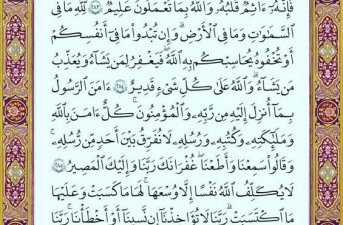 فَإِنَّهُۥٓ ءَاثِمٌ قَلْبُهُۥ ۗ وَٱللَّهُ بِمَا تَعْمَلُونَ عَلِيمٌ ﴿٢٨٣﴾ لِّلَّهِ مَا فِى
ٱلسَّمَٰوَٰتِ وَمَا فِى ٱلْأَرْضِ ۗ وَإِن تُبْدُوا۟ مَا فِىٓ أَنفُسِكُمْ
أَوْ تُخْفُوهُ يُحَاسِبْكُم بِهِ ٱللَّهُ ۖ فَيَغْفِرُ لِمَن يَشَآءُ وَيُعَذِّبُ
مَن يَشَآءُ ۗ وَٱللَّهُ عَلَىٰ كُلِّ شَىْءٍ قَدِيرٌ ﴿٢٨٤﴾ ءَامَنَ ٱلرَّسُولُ
بِمَآ أُنزِلَ إِلَيْهِ مِن رَّبِّهِۦ وَٱلْمُؤْمِنُونَ ۚ كُلٌّ ءَامَنَ بِٱللَّهِ
وَمَلَٰٓئِكَتِهِۦ وَكُتُبِهِۦ وَرُسُلِهِۦ لَا نُفَرِّقُ بَيْنَ أَحَدٍ مِّن رُّسُلِهِۦ ۚ
وَقَالُوا۟ سَمِعْنَا وَأَطَعْنَا ۖ غُفْرَانَكَ رَبَّنَا وَإِلَيْكَ ٱلْمَصِيرُ ﴿٢٨٥﴾
لَا يُكَلِّفُ ٱللَّهُ نَفْسًا إِلَّا وُسْعَهَا ۚ لَهَا مَا كَسَبَتْ وَعَلَيْهَا
مَا ٱكْتَسَبَتْ ۗ رَبَّنَا لَا تُؤَاخِذْنَآ إِن نَّسِينَآ أَوْ أَخْطَأْنَا ۚ رَبَّنَا